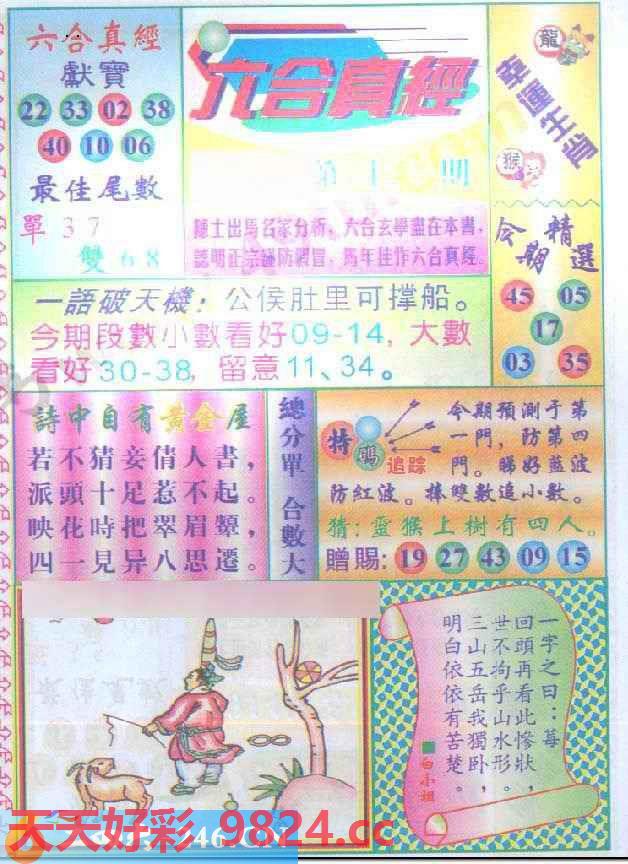 六合真經
獻寶
22 33 02 38
40 10 06
最佳尾數
單 3 7
雙 6 8
六合真經
第 期
龍
幸運生肖
猴
一語破天機：公侯肚里可撑船。
今期段數小數看好09-14, 大數
看好30-38, 留意11、34。
今期精選
45 05
17
03 35
詩中自有黃金屋
若不猜妾倩人書，
派頭十足惹不起。
映花時把翠眉顰，
四一見异八思遷。
總分單 合數大
特碼追踪
今期預測于第
一門，防第四
門。睇好藍波
防紅波。捧雙數追小數。
猜：靈猴上樹有四人。
贈賜：19 27 43 09 15
一字之曰：莓
回頭再看此慘狀，
世不拘乎山水形。
三山五岳我獨卧，
明白依依有苦楚。
■白小姐
天天好彩 9824.cc